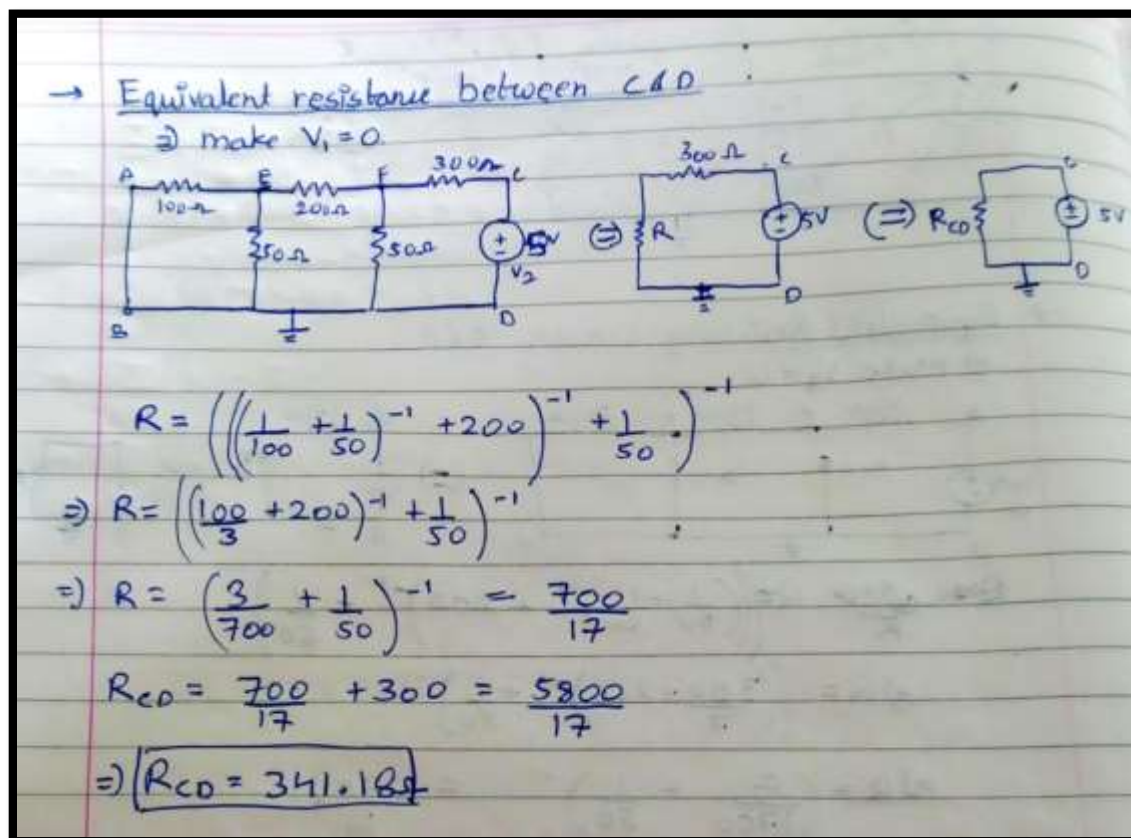 → Equivalent resistance between C & D
⇒ make V₁ = 0.
A 100Ω E 200Ω F 300Ω C
50Ω 50Ω 5V V₂
B D
⇔
300Ω C
R 5V
D
⇔
C
R_CD 5V
D
R = (((1/100 + 1/50)⁻¹ + 200)⁻¹ + 1/50)⁻¹
⇒ R = ((100/3 + 200)⁻¹ + 1/50)⁻¹
⇒ R = (3/700 + 1/50)⁻¹ = 700/17
R_CD = 700/17 + 300 = 5800/17
⇒ R_CD = 341.18Ω